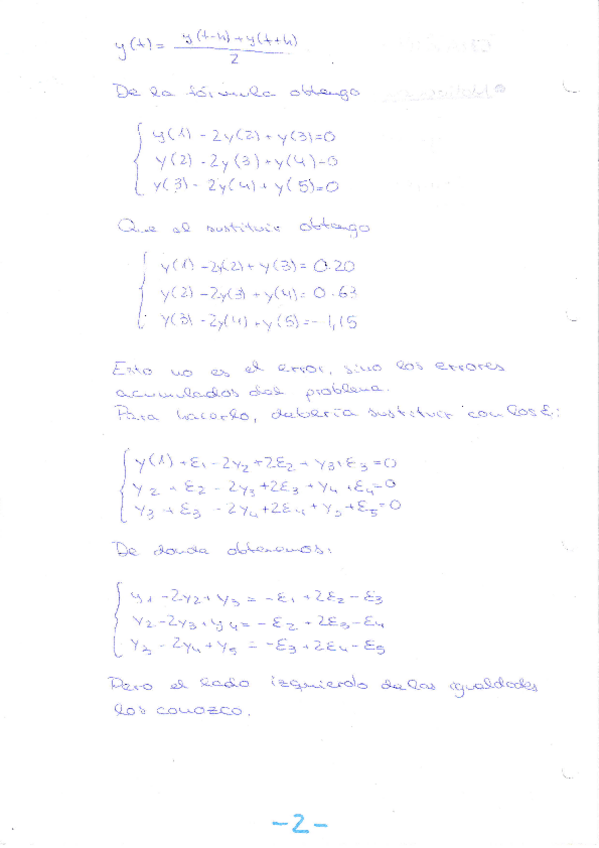 y(t) = (y(t-h)+y(t+h))/2
De la fórmula obtengo
y(1) - 2y(2) + y(3) = 0
y(2) - 2y(3) + y(4) = 0
y(3) - 2y(4) + y(5) = 0
Que al sustituir obtengo
y(1) - 2y(2) + y(3) = 0.20
y(2) - 2y(3) + y(4) = 0.63
y(3) - 2y(4) + y(5) = -1,15
Esto no es el error, sino los errores
acumulados del problema.
Para hacerlo, debería sustituir con los ε:
y(1) + ε1 - 2y2 + 2ε2 + y3 + ε3 = 0
y2 + ε2 - 2y3 + 2ε3 + y4 + ε4 = 0
y3 + ε3 - 2y4 + 2ε4 + y5 + ε5 = 0
De donde obtenemos:
y1 - 2y2 + y3 = -ε1 + 2ε2 - ε3
y2 - 2y3 + y4 = -ε2 + 2ε3 - ε4
y3 - 2y4 + y5 = -ε3 + 2ε4 - ε5
Pero el lado izquierdo de las igualdades
los conozco.
-2-